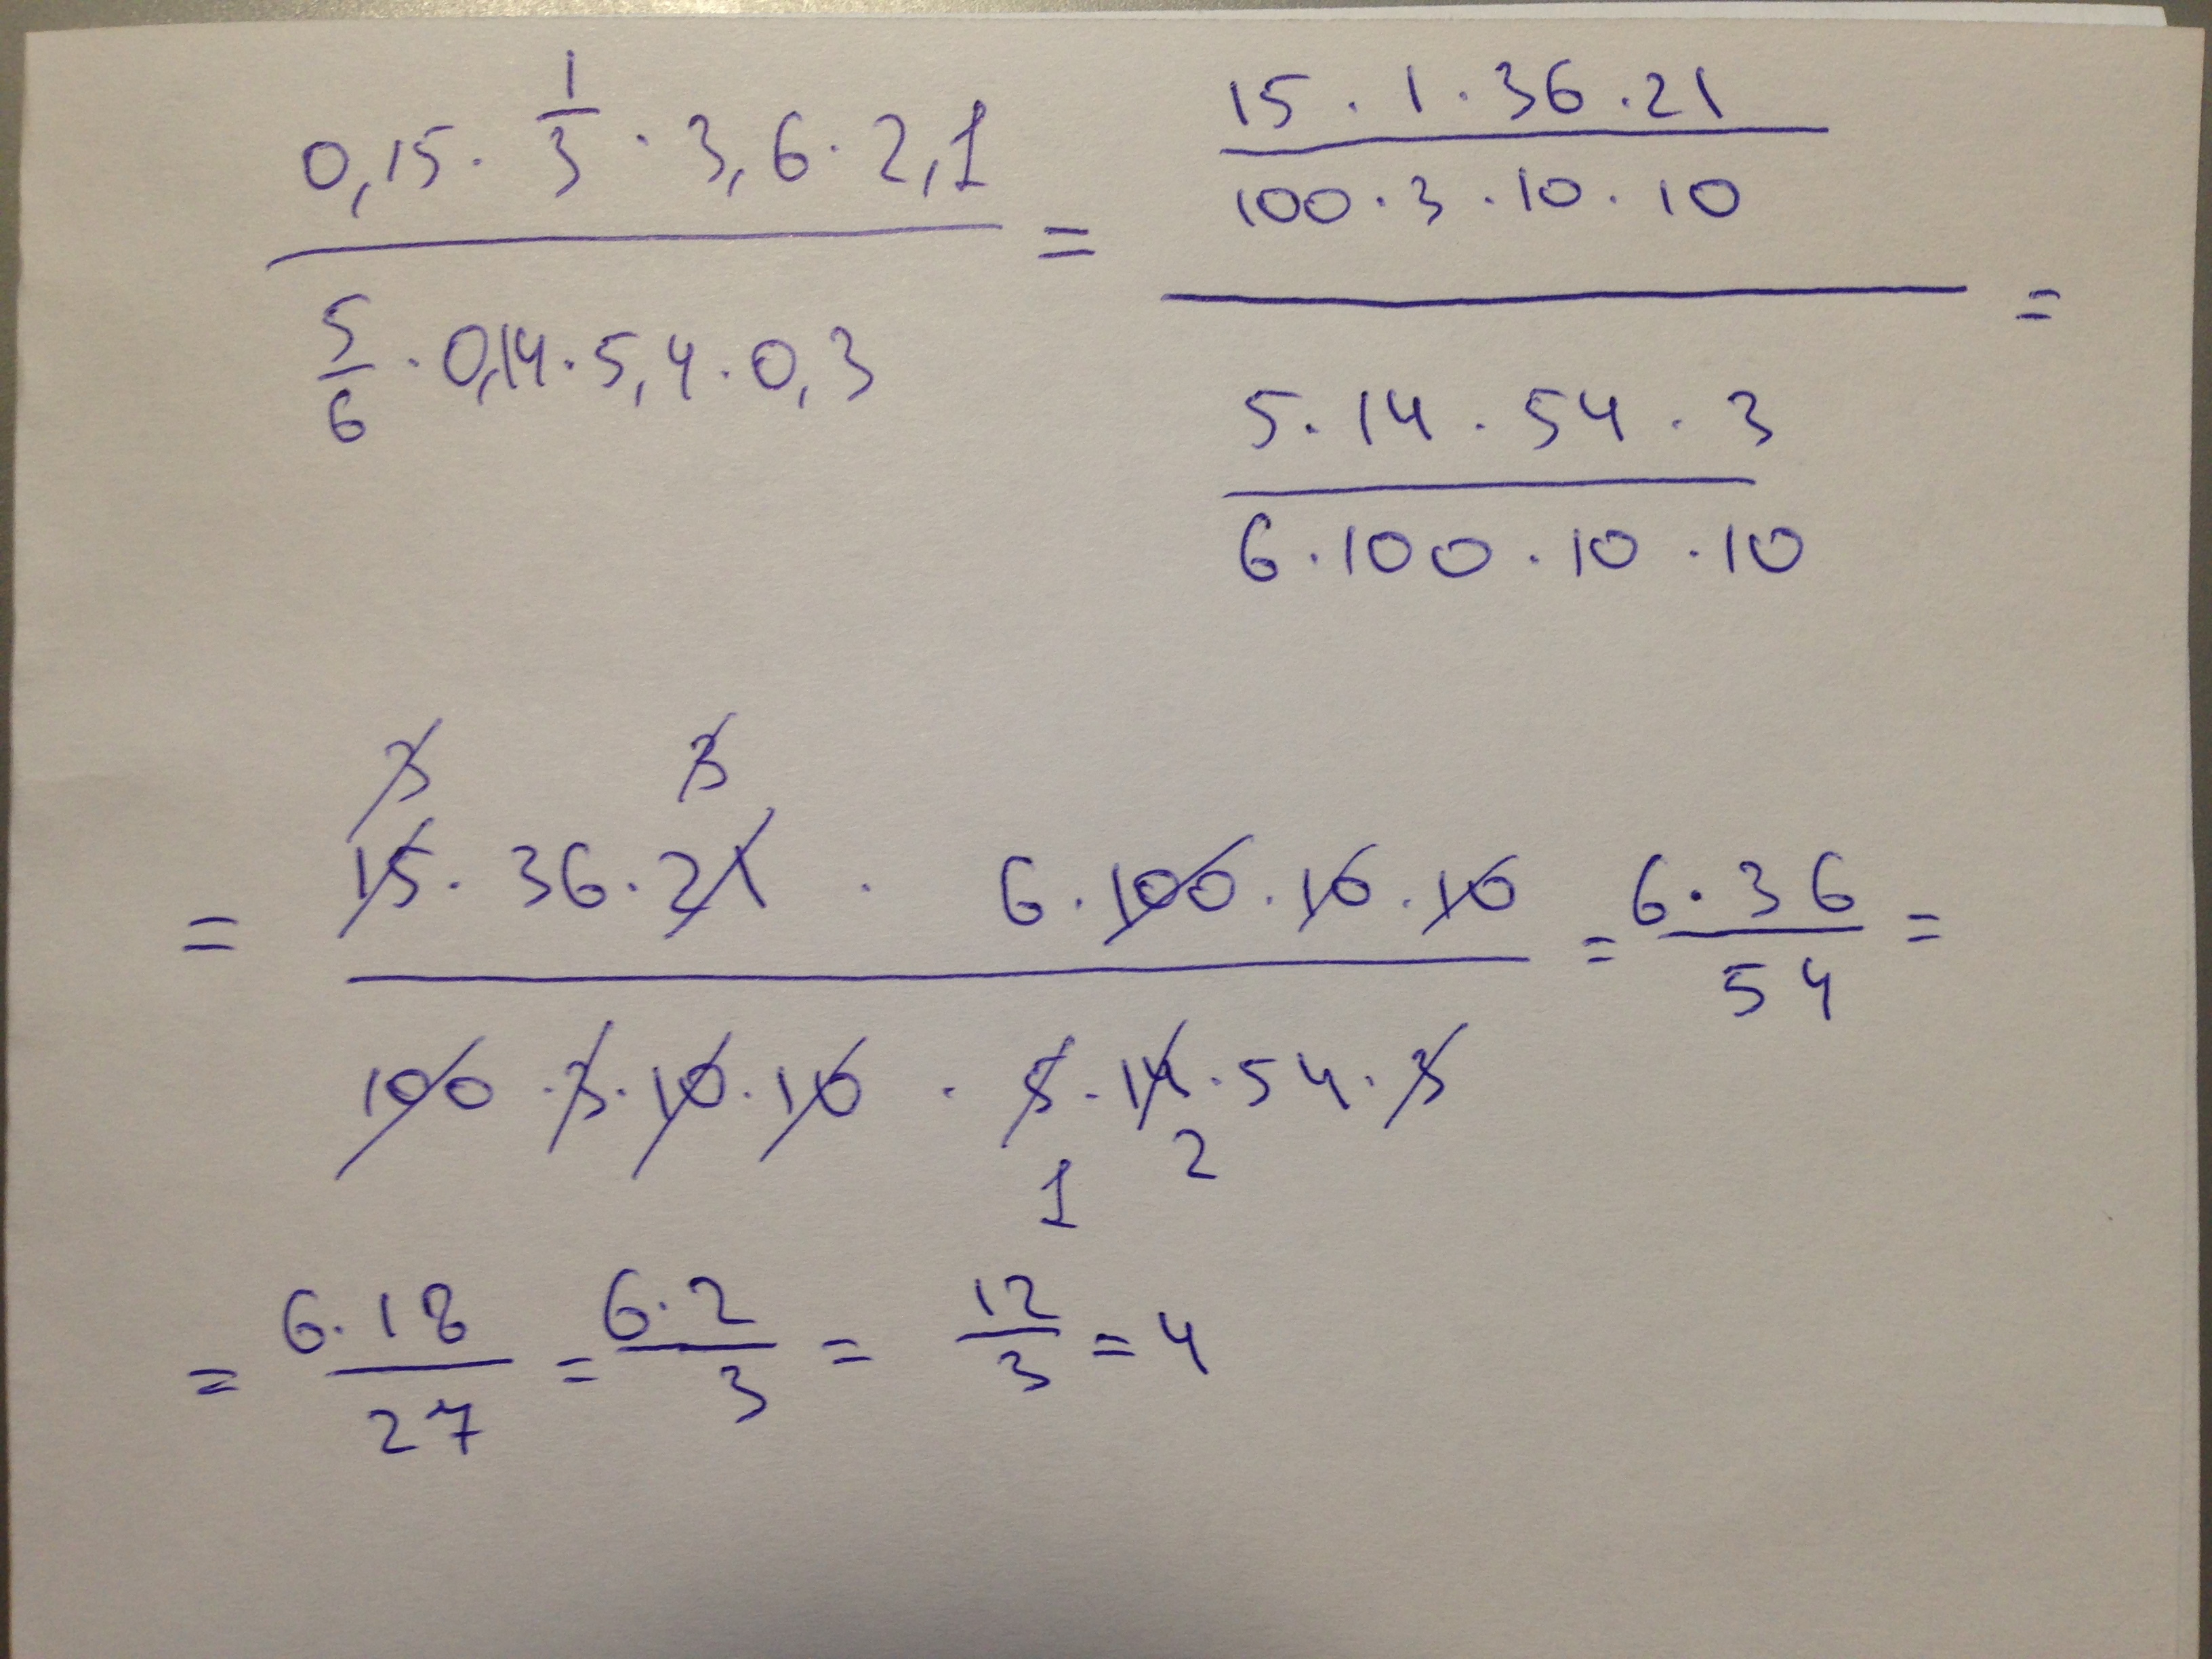 0,15 · 1/3 · 3,6 · 2,1
5/6 · 0,14 · 5,4 · 0,3
=
15 · 1 · 36 · 21
100 · 3 · 10 · 10
5 · 14 · 54 · 3
6 · 100 · 10 · 10
=
3 3
= 15 · 36 · 21 · 6 · 100 · 10 · 10
100 · 3 · 10 · 10 · 5 · 14 · 54 · 3
1 2
= 6 · 36 / 54 =
= 6 · 18 / 27 = 6 · 2 / 3 = 12 / 3 = 4